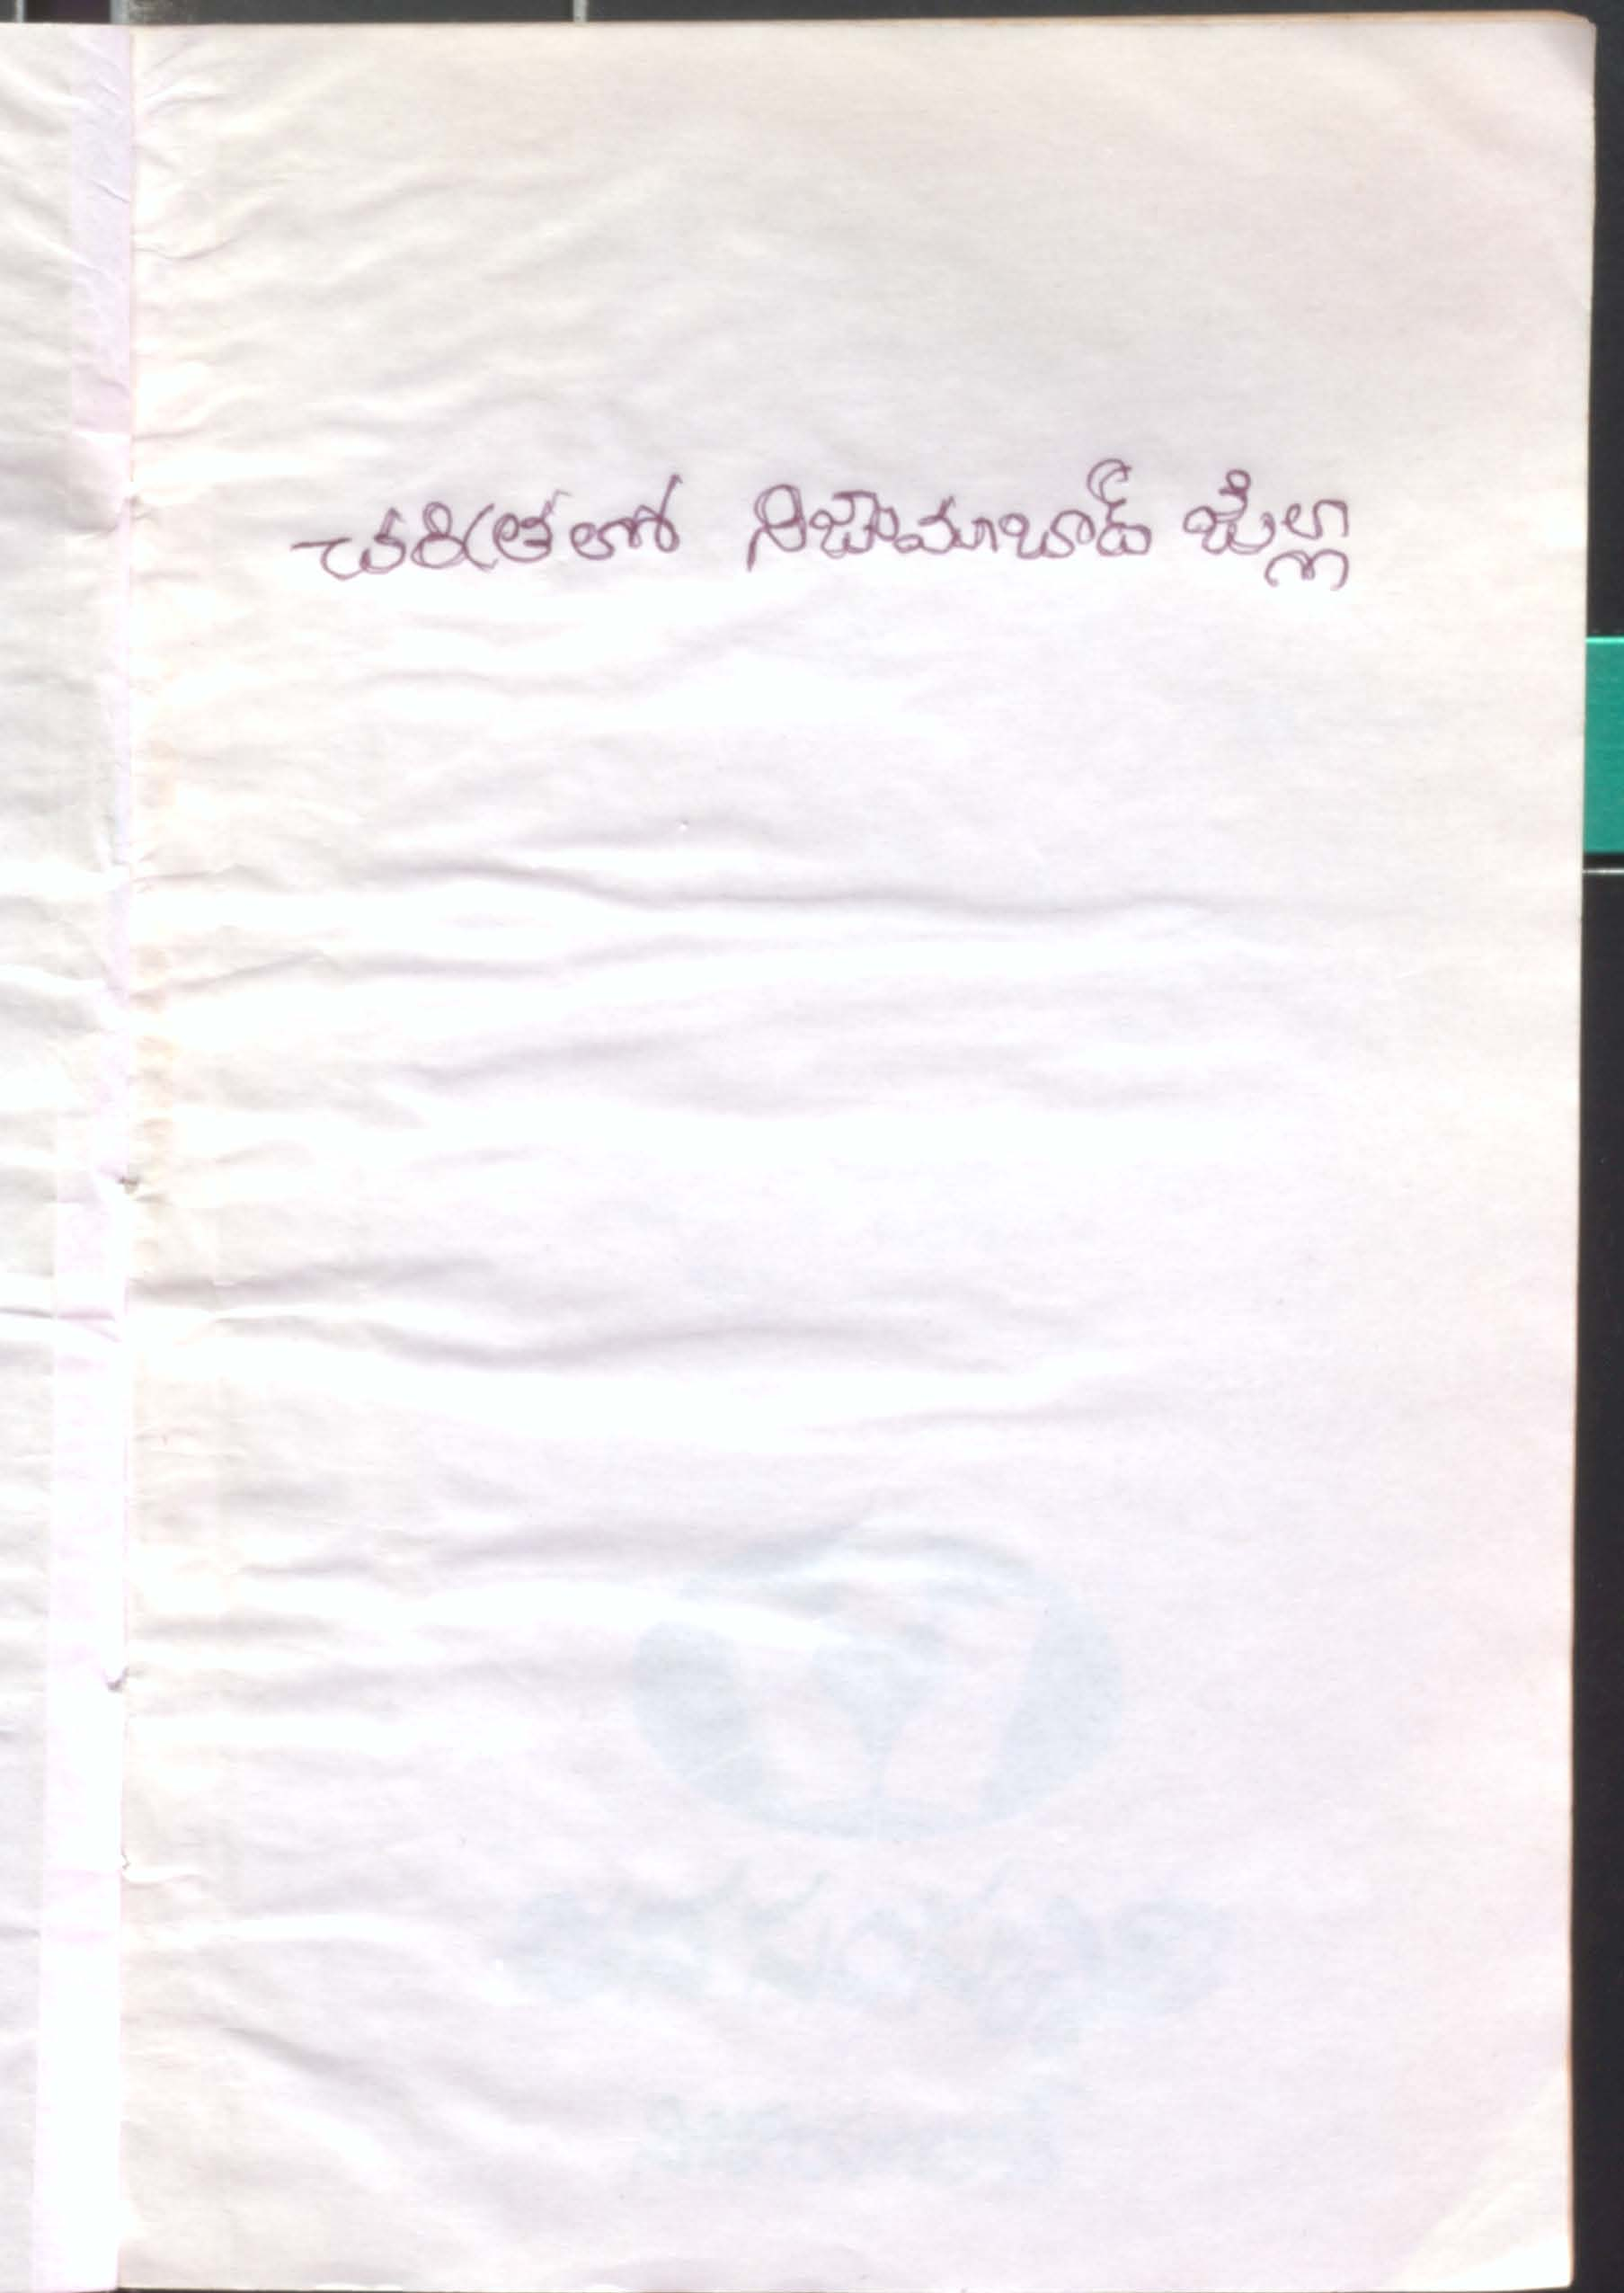 చరిత్రలో నిజామాబాద్ జిల్లా